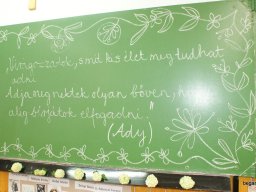 "Virágozzatok, s mit kis élet megtudhat
adni
Adja meg nektek olyan bőven, hogy
alig bírjátok elfogadni."
(Ady)